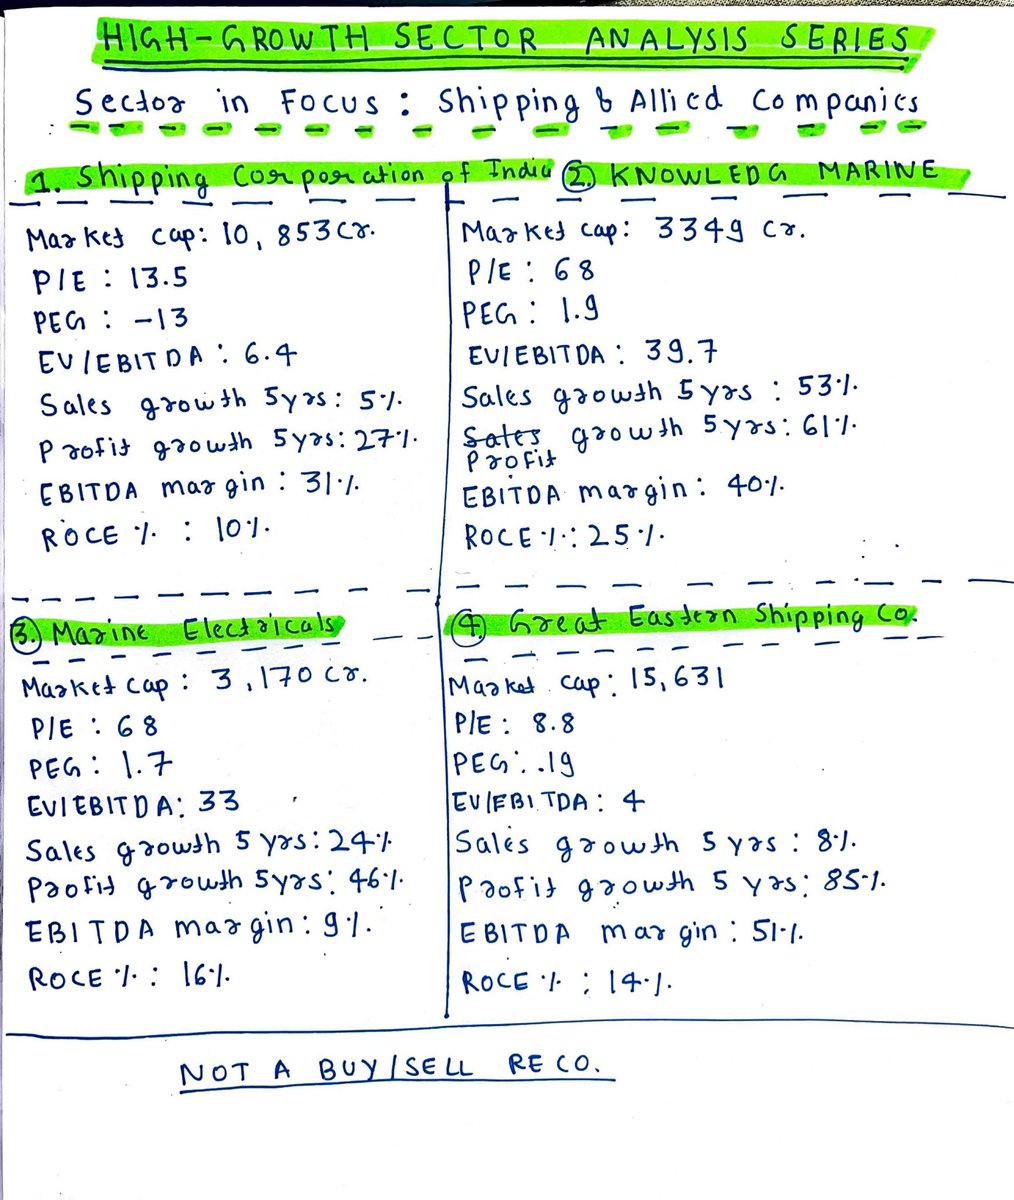 HIGH-GROWTH SECTOR ANALYSIS SERIES
Sector in FOCUS : Shipping & Allied Companies
1. Shipping Corporation of India
Market cap: 10,853 Cr.
P/E : 13.5
PEG : -13
EV/EBITDA : 6.4
Sales growth 5yrs: 5%.
Profit growth 5yrs: 27%.
EBITDA margin : 31%.
ROCE % : 10%.
2. KNOWLEDG MARINE
Market cap: 3349 Cr.
P/E : 68
PEG : 1.9
EV/EBITDA : 39.7
Sales growth 5yrs : 53%.
Sales growth 5yrs: 61%.
Profit
EBITDA margin : 40%.
ROCE %: 25%.
3. Marine Electricals
Market cap : 3,170 Cr.
P/E : 68
PEG : 1.7
EV/EBITDA: 33
Sales growth 5 yrs: 24%
Profit growth 5yrs: 46%.
EBITDA margin : 9%.
ROCE % : 16%.
4. Great Eastern Shipping Co.
Market cap: 15,631
P/E : 8.8
PEG: .19
EV/EBITDA : 4
Sales growth 5 yrs : 8%.
Profit growth 5 yrs: 85%.
EBITDA margin : 51%.
ROCE % : 14%.
NOT A BUY/SELL RECO.